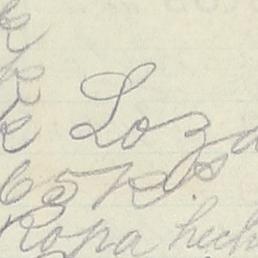 Loza
65 Ks.
Ropa hech